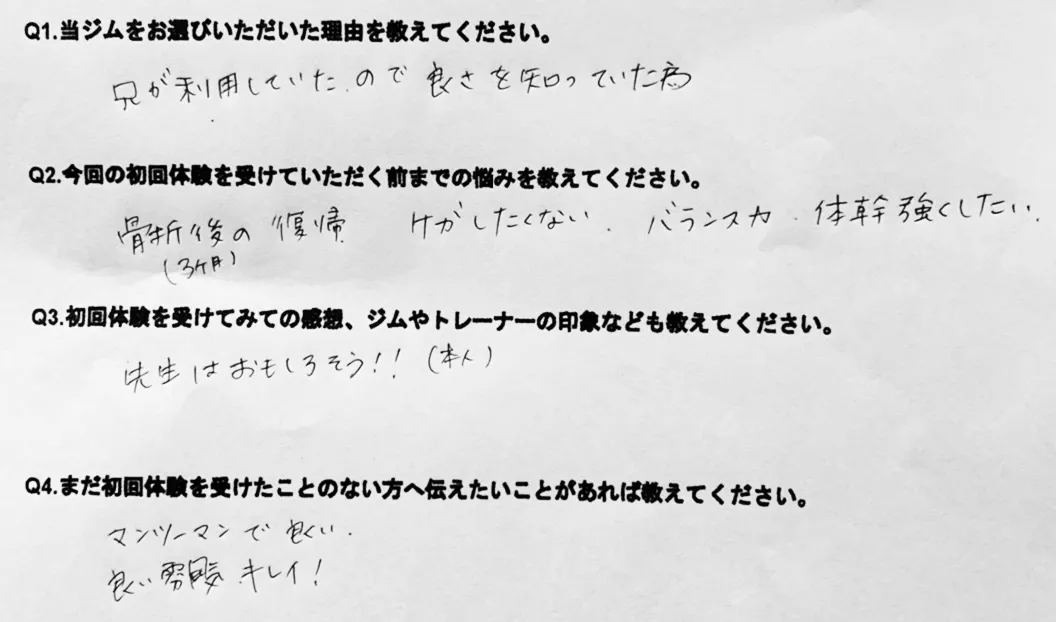 Q1.当ジムをお選びいただいた理由を教えてください。
兄が利用していた.ので良さを知っていた為
Q2.今回の初回体験を受けていただく前までの悩みを教えてください。
骨折後の復帰 ケガしたくない. バランス力.体幹強くしたい.
(3ヶ月)
Q3.初回体験を受けてみての感想、ジムやトレーナーの印象なども教えてください。
先生はおもしろそう!!(本人)
Q4.まだ初回体験を受けたことのない方へ伝えたいことがあれば教えてください。
マンツーマンで良い.
良い雰囲気 キレイ!